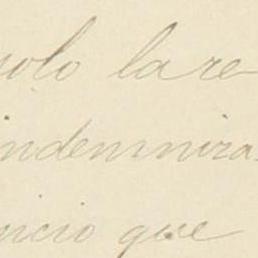 solo la re
indemniza
ncio que